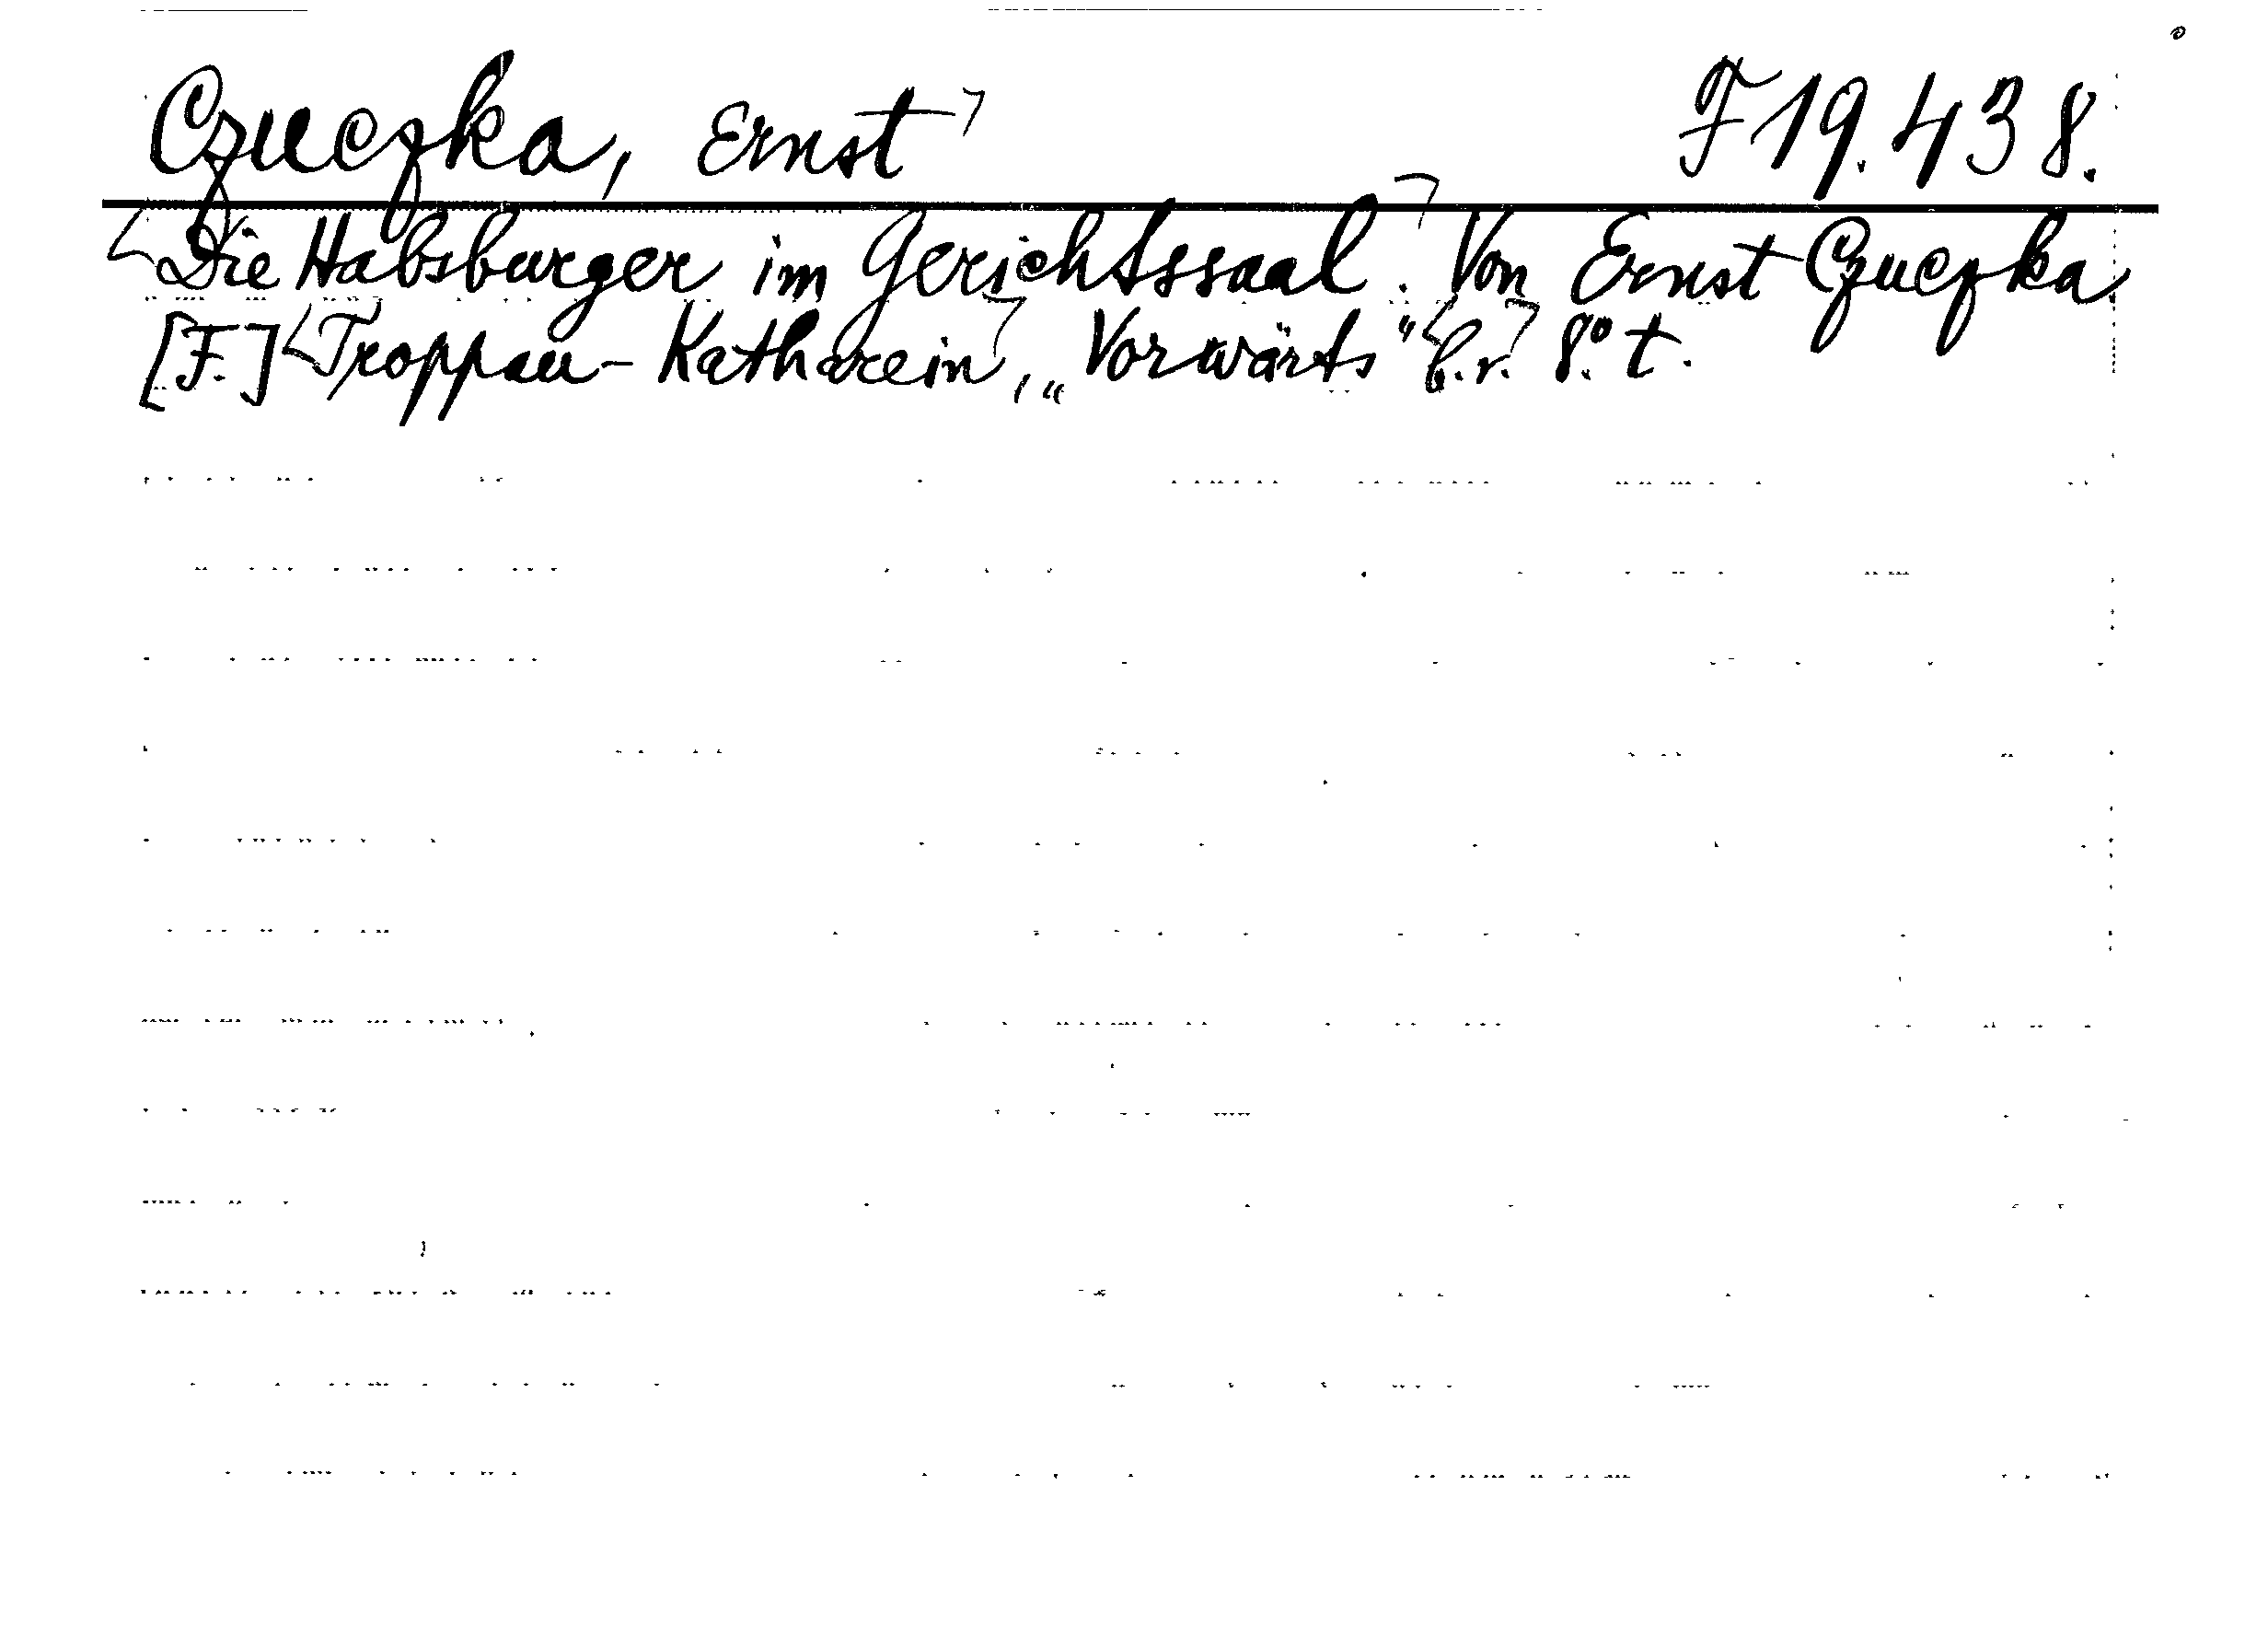 Czuczka, Ernst F 19.438.
Die Habsburger im Gerichtssaal. Von Ernst Czuczka
[F.] Troppau-Katharein, „Vorwärts“ b.r. 8.° t.